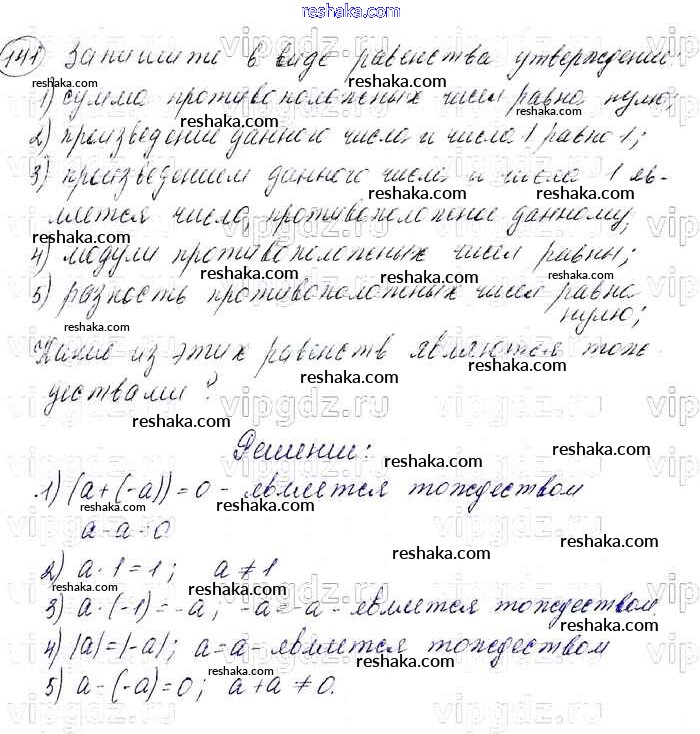 reshaka.com
141) Запишите в виде равенства утверждение:
1) сумма противоположных чисел равна нулю;
2) произведение данного числа и числа 1 равно 1;
3) произведением данного числа и числа 1 яв-
ляется число, противоположное данному;
4) модули противоположных чисел равны;
5) разность противоположных чисел равна
нулю;
Какие из этих равенств являются тож-
дествами?
Решение:
1) (a+(-a))=0 - является тождеством
a-a=0
2) a·1=1; a≠1
3) a·(-1)=-a; -a=-a - является тождеством
4) |a|=|-a|; a=a - является тождеством
5) a-(-a)=0; a+a≠0.
vipgdz.ru